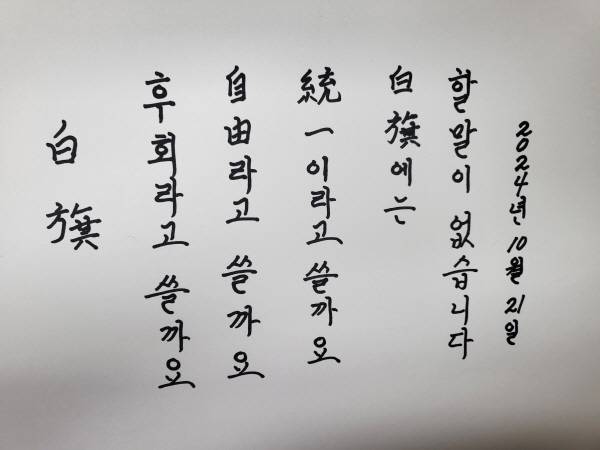 白旗
후회라고 쓸까요
自由라고 쓸까요
統一이라고 쓸까요
白旗에는
할말이 없습니다
2024년 10월 21일